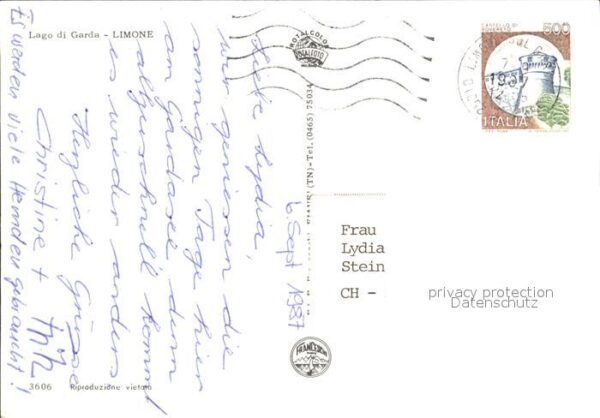 Lago di Garda - LIMONE
6 Sept 1987
Liebe Lydia,
wir geniessen die
sonnigen Tage hier
am Gardasee denn
allzuschnell kommt
es wieder anders
Herzliche Grüsse
Christine +
Es werden viele Hemden gebraucht!
3606 Riproduzione vietata
ROTALCOLOR
ROTALFOTO
MILANO
(TN) - Tel. (0465) 75034
FRANCESCHI
CASTELLO DI
500
ITALIA
LIMONE SUL
Frau
Lydia
Stein
CH -
privacy protection
Datenschutz